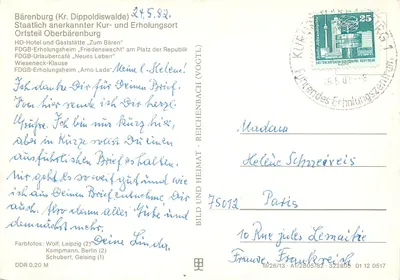 Bärenburg (Kr. Dippoldiswalde)
Staatlich anerkannter Kur- und Erholungsort
Ortsteil Oberbärenburg
24.5.82.
HO-Hotel und Gaststätte „Zum Bären"
FDGB-Erholungsheim „Friedenswacht" am Platz der Republik
FDGB-Urlaubercafé „Neues Leben"
Wieseneck-Klause
FDGB-Erholungsheim „Arno Lade"
Meine l. Helene!
Ich danke Dir für Deinen Brief.
Von hier sende ich Dir herzl.
Grüße. Ich bin nur kurz hier,
aber in Kürze sollst Du einen
ausführlichen Brief erhalten.
Mir geht es so weit gut und wie
ich aus Deinen Brief entnehme Dir
auch. Also dann alles Gute und
demnächst mehr.
Deine Linda
Farbfotos: Wolf, Leipzig (2)
Kampmann, Berlin (2)
Schubert, Geising (1)
DDR 0,20 M
BILD UND HEIMAT · REICHENBACH (VOGTL)
25
DDR
Madame
Helène
75012 Paris
10 Rue Jules Lemaître
France, Frankreich
01 12 0517